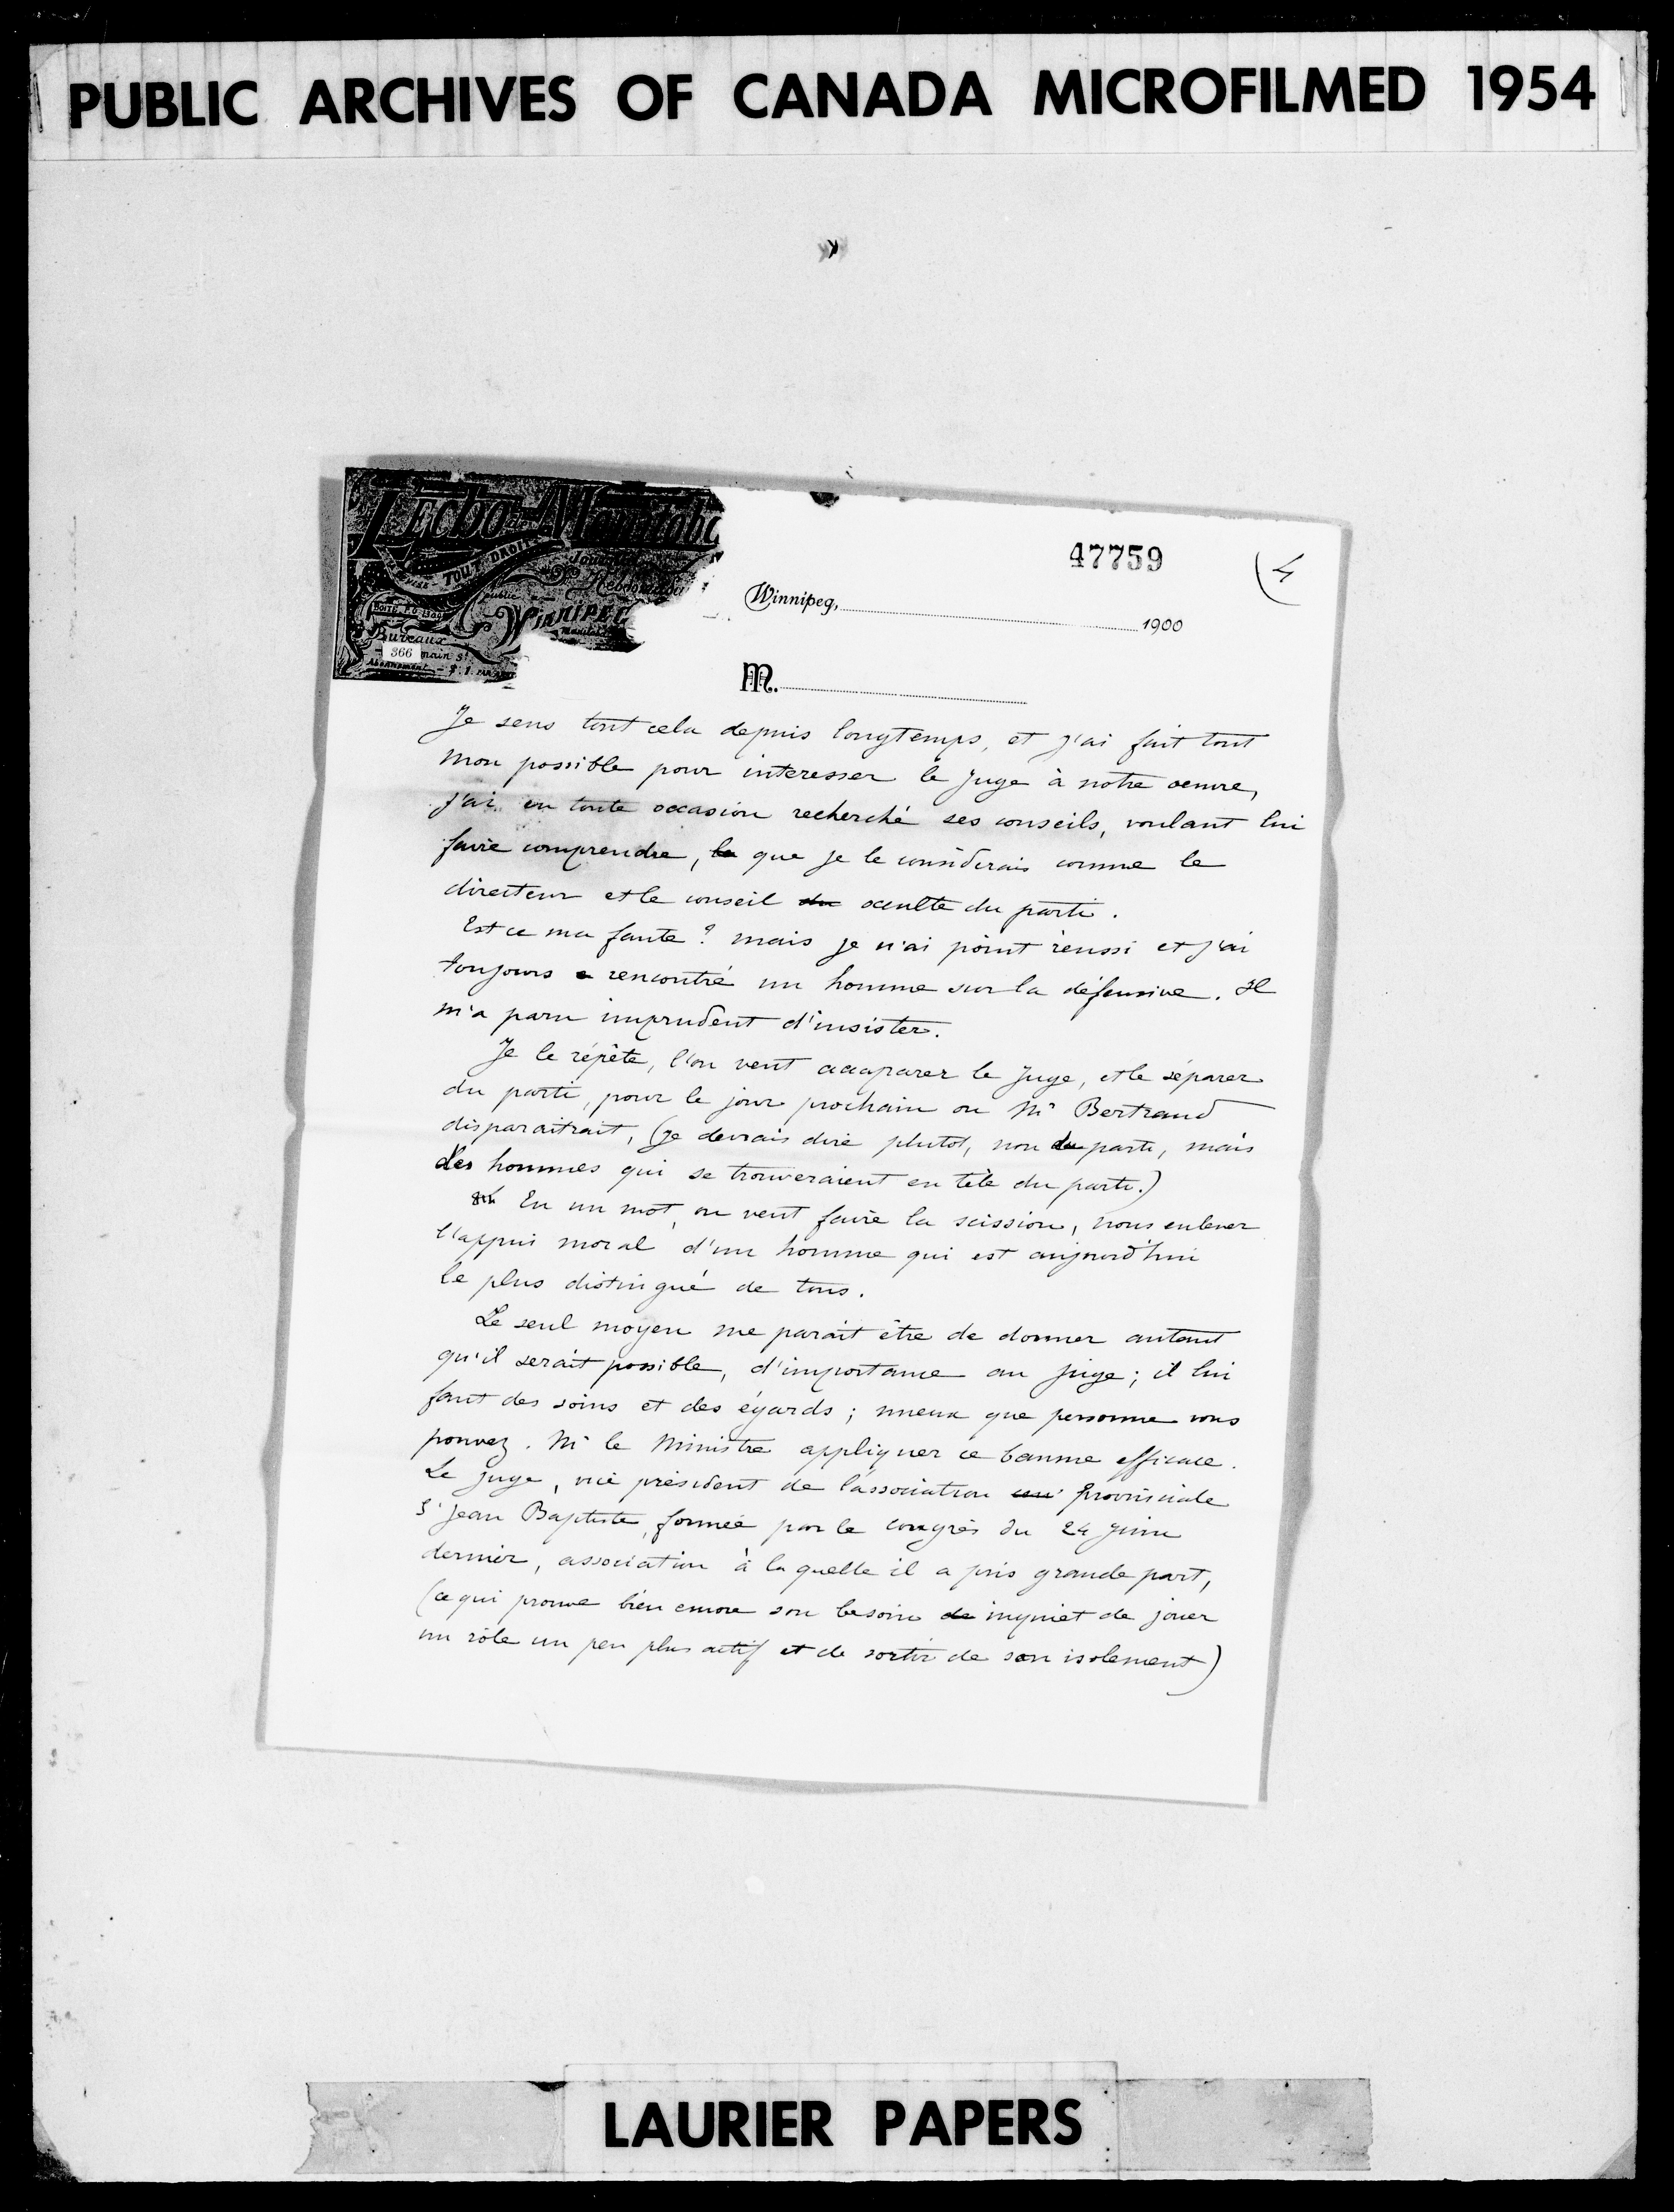 PUBLIC ARCHIVES OF CANADA MICROFILMED 1954
L'Echo de Manitoba
TOUT DROIT
Journal
Hebdomadai
public
WINNIPEG
Manitoba
BOITE P.O. 1309
Bureaux
366 main St
Abonnement - $.1. PAR AN
47759
(4
Winnipeg, 1900
M.
Je sens tout cela depuis longtemps, et j'ai fait tout
mon possible pour interesser le juge à notre oeuvre,
j'ai en toute occasion recherché ses conseils, voulant lui
faire comprendre, le que je le considerais comme le
directeur et le conseil du occulte du parti.
Est ce ma faute? mais je n'ai point réussi et j'ai
toujours a rencontré un homme sur la défensive. Il
m'a paru imprudent d'insister.
Je le répète, l'on veut accaparer le juge, et le séparer
du parti, pour le jour prochain ou Mr Bertrand
disparaitrait, (je devrais dire plutot, non du parti, mais
des hommes qui se trouveraient en tête du parti.)
En un mot, on veut faire la scission, nous enlever
l'appui moral d'un homme qui est aujourd'hui
le plus distingué de tous.
Le seul moyen me parait être de donner autant
qu'il serait possible, d'importance au juge; il lui
faut des soins et des égards; mieux que personne vous
pouvez. Mr le Ministre appliquer ce baume efficace.
Le juge, vice président de l'association Provinciale
St Jean Baptiste, formée par le congrès du 24 Juin
dernier, association à laquelle il a pris grande part,
(ce qui prouve bien encore son besoin de inquiet de jouer
un rôle un peu plus actif et de sortir de son isolement)
LAURIER PAPERS